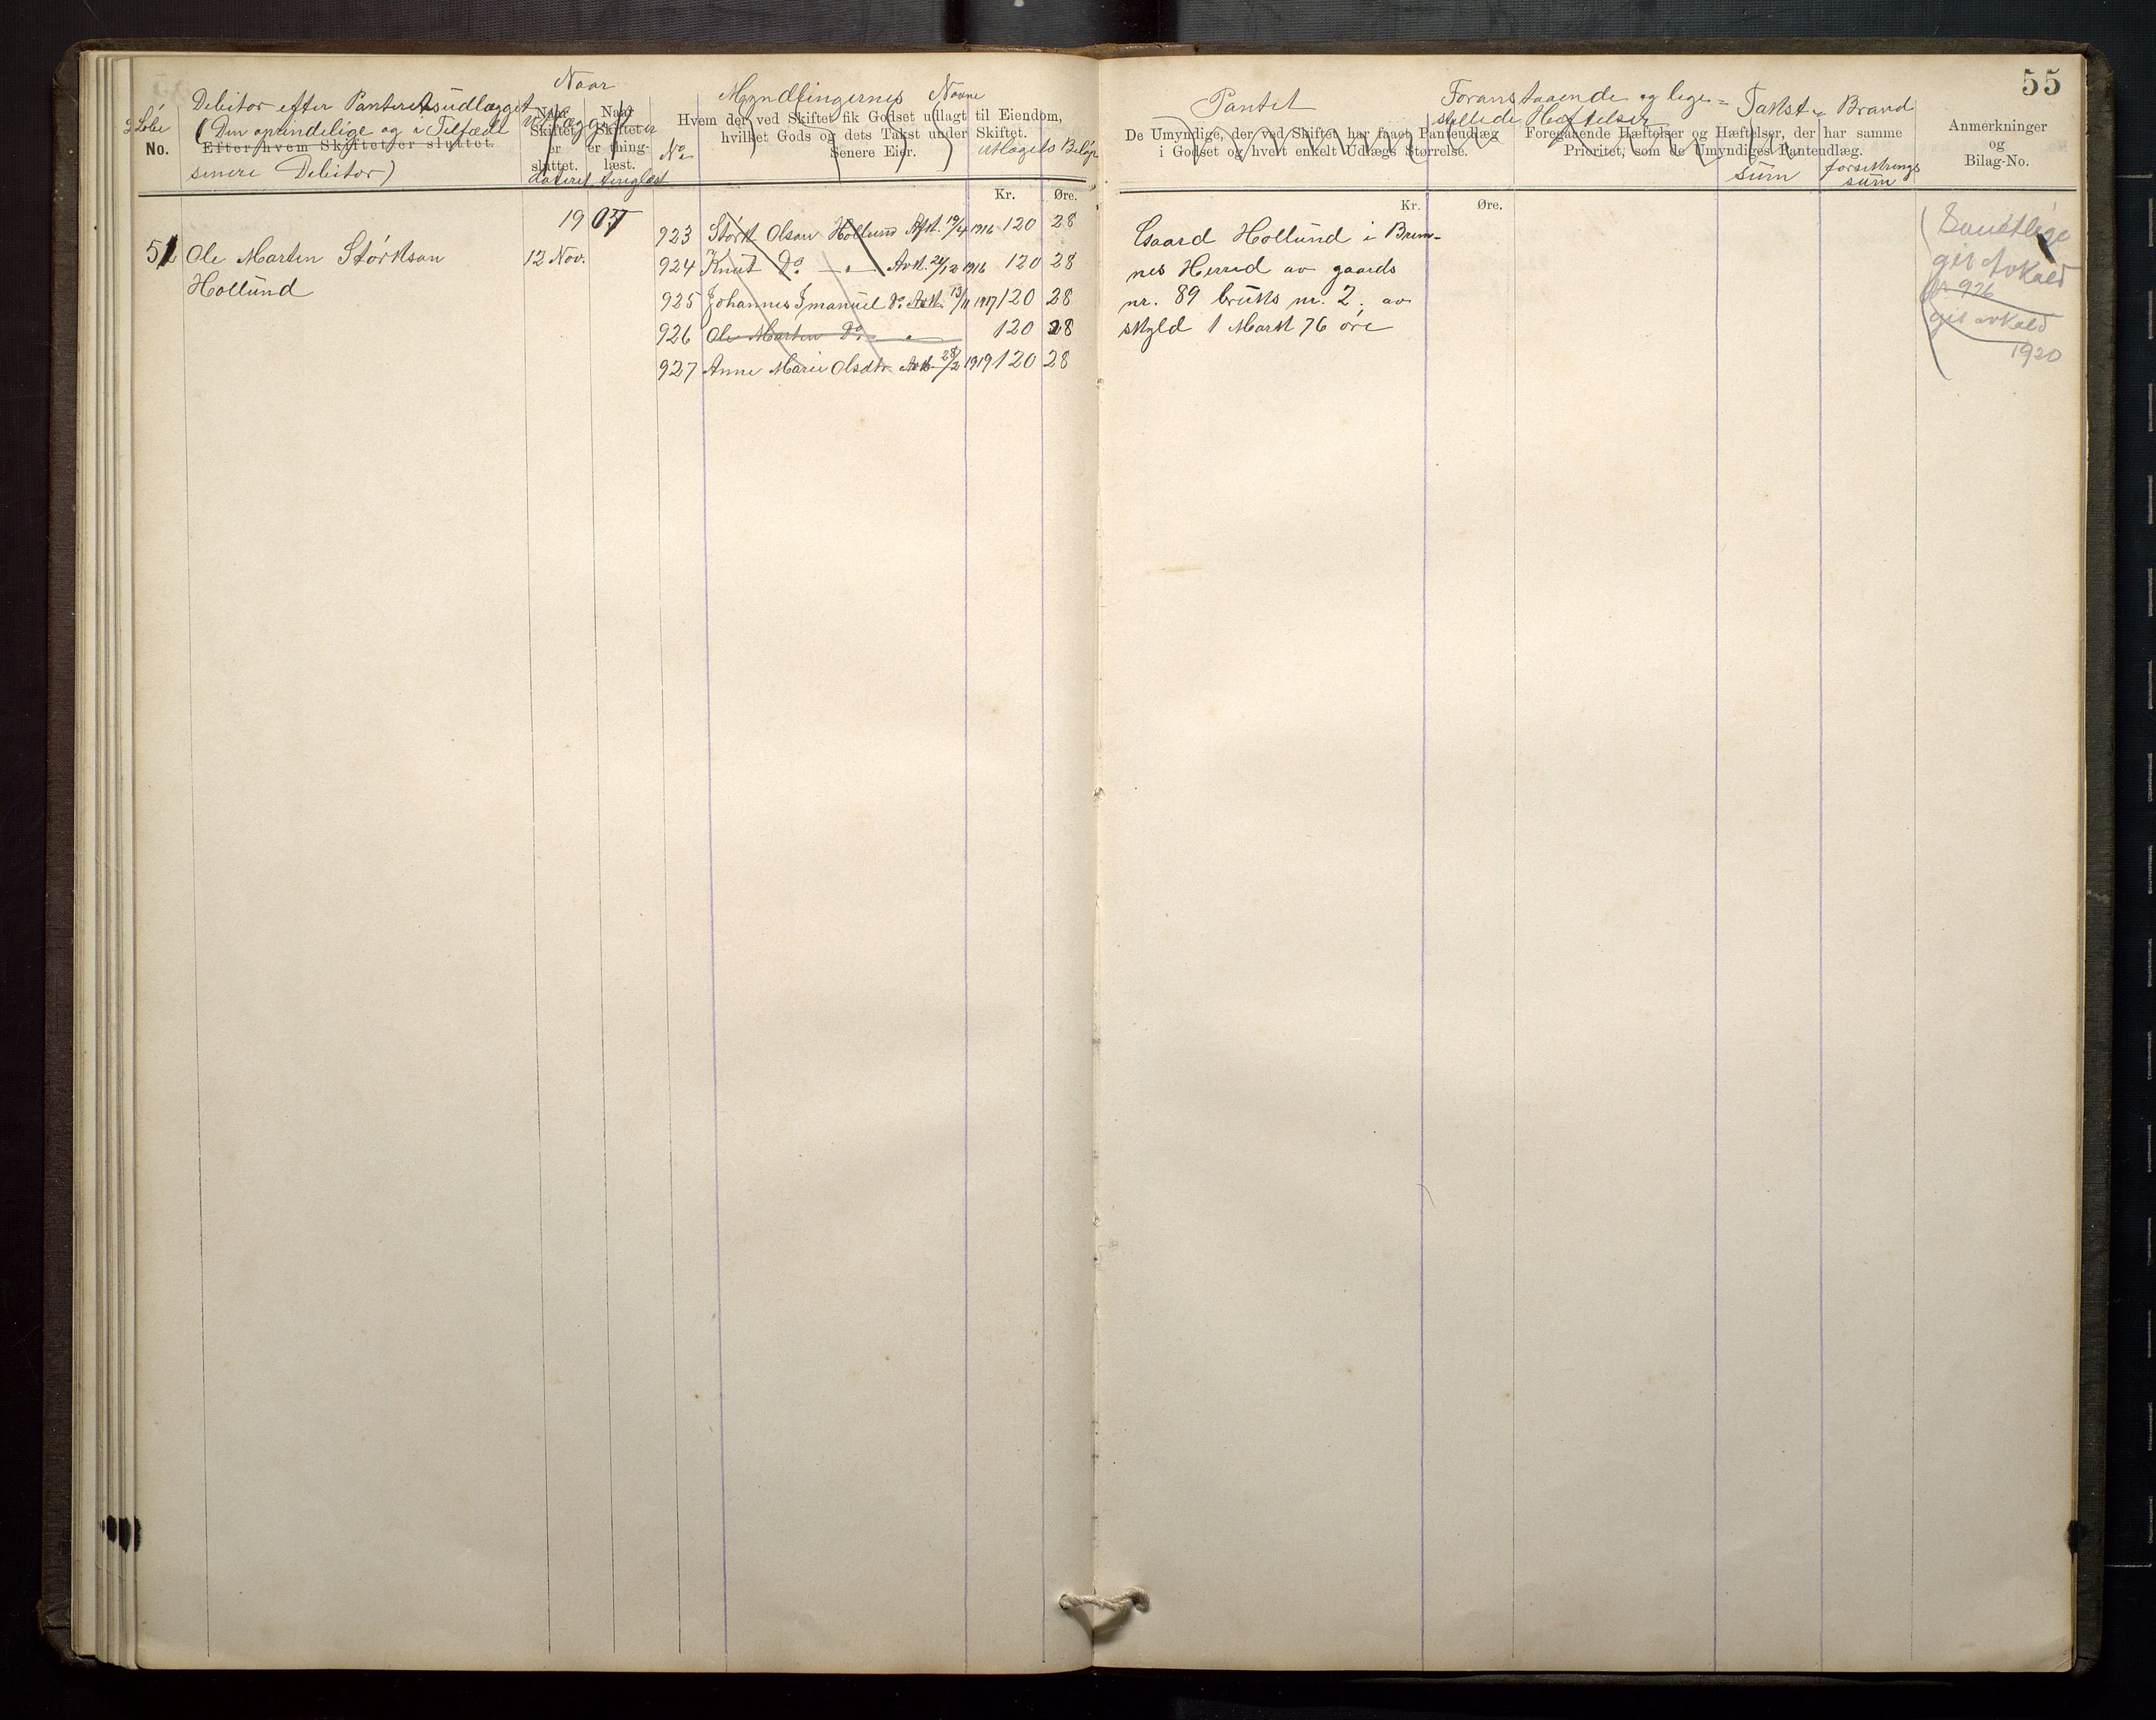 55
Løbe No.
Debitor efter Panteretsudlægget
(Den oprindelige og i Tilfælde
Efter hvem Skiftet er sluttet.
senere Debitor)
Naar
Udlægget er
Naar Skiftet er sluttet.
Naar Skiftet er thing-læst.
dateret tinglæst
No.
Myndlingernes Navne
Hvem der ved Skiftet fik Godset udlagt til Eiendom,
hvilket Gods og dets Takst under Skiftet.
Senere Eier.
Utlægets Beløp
Kr. Øre.
Pantet
De Umyndige, der ved Skiftet har faaet Panteudlæg
i Godset og hvert enkelt Udlægs Størrelse.
Kr. Øre.
Foranstaaende og lige-
stillede Hæftelser
Foregaaende Hæftelser og Hæftelser, der har samme
Prioritet, som de Umyndiges Panteudlæg.
Takst-
sum
Brand
forsikrings
sum
Anmerkninger
og
Bilag-No.
1907
923 Størk Olsen Hollund Afk. 19/4 1916 120 28
51 Ole Marten Størksøn
Hollund
12 Nov.
924 Knut Do. — " — Avk. 24/12 1916 120 28
925 Johannes Imanuel Do. Avk. 13/11 1917 120 28
926 Ole Marten Do. " 120 28
927 Anne Marie Olsdtr Avk. 28/2 1919 120 28
Gaard Hollund i Brem-
nes Herred av gaards
nr. 89 bruks nr. 2. av
skyld 1 Mark 76 øre
Samtlige
git Avkald
926
git avkald
1920